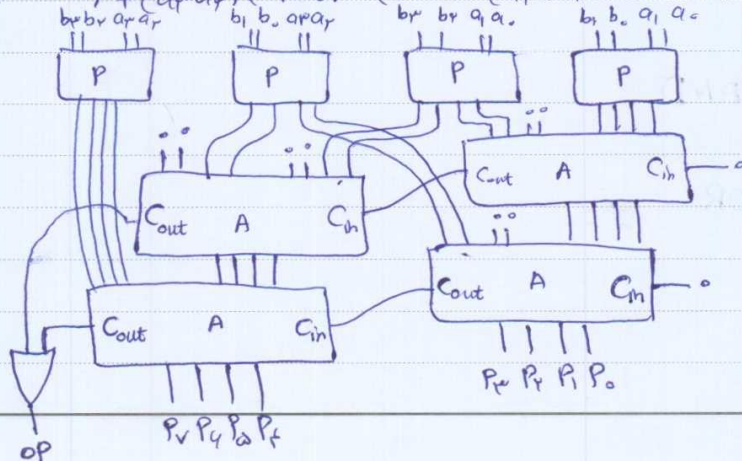 b۳ b۲ a۳ a۲ b۱ b۰ a۳ a۲ b۳ b۲ a۱ a۰ b۱ b۰ a۱ a۰
P P P P
۰ ۰ ۰ ۰ ۰ ۰
Cout A Cin ۰
Cout A Cin
۰ ۰
Cout A Cin ۰
Cout A Cin
P۳ P۲ P۱ P۰
P۷ P۶ P۵ P۴
OP